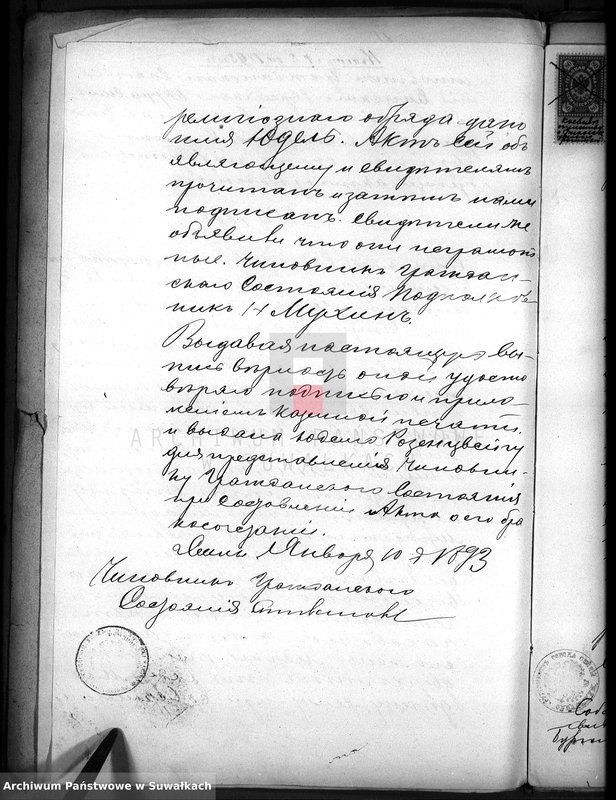 религіознаго обряда дано
имя Юдель. Актъ сей объ
являющему и свидѣтелямъ
прочитанъ и затѣмъ нами
подписанъ. Свидѣтели же
объявили что они неграмот
ные. Чиновникъ Граждан-
скаго Состоянія Подполков
никъ Н Мухинъ.
Выдавая настоящую вы-
пись вѣрность оной удосто
вѣряю подписью и прило-
женіемъ казенной печати.
и выдана Юделю Розенцвейгу
для представленія Чиновни-
ку Гражданскаго Состоянія
при составленіи Акта о его бра
косочетаніи.
Января 10 д 1893
Чиновникъ Гражданскаго
Состоянія
ARCHIWUM PAŃSTWOWE
W SUWAŁKACH
Archiwum Państwowe w Suwałkach